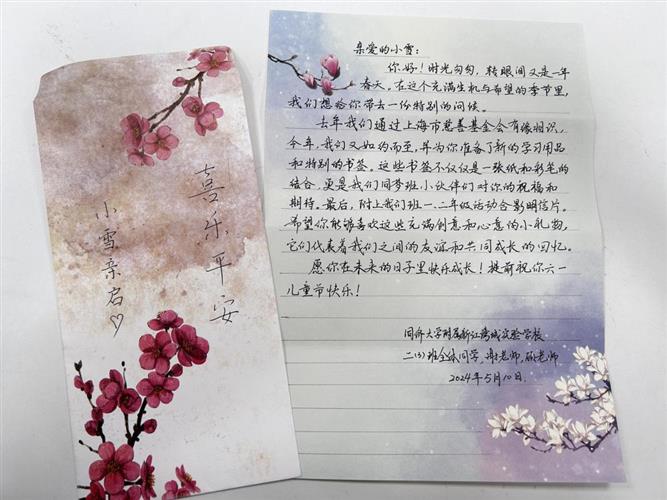 喜乐平安
小雪亲启♡
亲爱的小雪：
你好！时光匆匆，转眼间又是一年
春天。在这个充满生机与希望的季节里，
我们想给你带去一份特别的问候。
去年我们通过上海市慈善基金会有缘相识，
今年，我们又如约而至，并为你准备了新的学习用品
和特别的书签。这些书签不仅仅是一张纸和彩笔的
结合，更是我们同梦班小伙伴们对你的祝福和
期待。最后，附上我们班一、二年级活动合影明信片。
希望你能够喜欢这些充满创意和心意的小礼物，
它们代表着我们之间的友谊和共同成长的回忆。
愿你在未来的日子里快乐成长！提前祝你六一
儿童节快乐！
同济大学附属新江湾城实验学校
二(3)班全体同学，谢老师，顾老师
2024年5月10日.